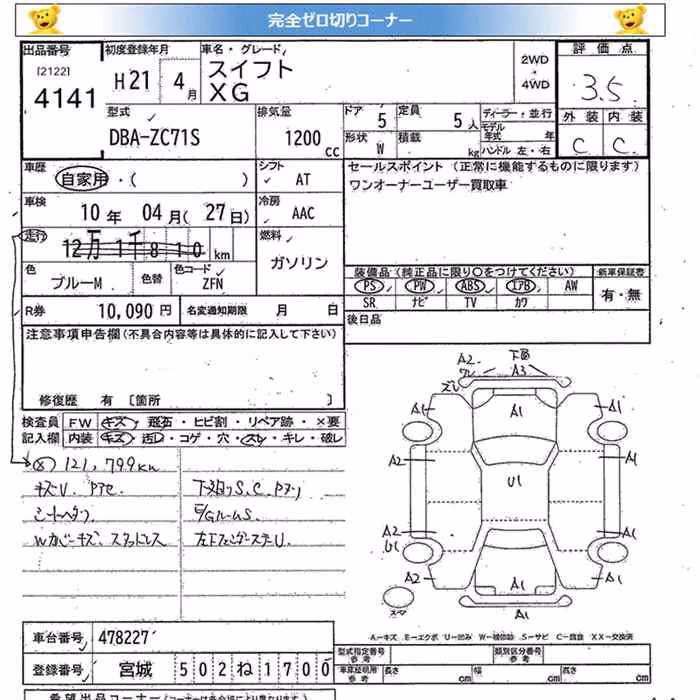 完全ゼロ切りコーナー
出品番号 [2122] 4141
初度登録年月 H21 4月
車名・グレード スイフト XG
2WD
4WD
評価点 3.5
外装 内装
C C
型式 DBA-ZC71S
排気量 1200 cc
ドア 5
定員 5人
形状 W
積載 kg
ディーラー・並行
モデル年式 年
ハンドル 左・右
車歴 自家用・( )
シフト AT
車検 10年 04月(27日)
冷房 AAC
セールスポイント(正常に機能するものに限ります)
ワンオーナーユーザー買取車
走行 12万1千810 km
燃料 ガソリン
色 ブルーM 色替 色コード ZFN
装備品(純正品に限り○をつけてください) 新車保証書
PS PW ABS エアB AW 有・無
SR ナビ TV カワ
R券 10,090円 名変通知期限 月 日
後日品
注意事項申告欄(不具合内容等は具体的に記入して下さい)
修復歴 有 〔箇所 〕
検査員記入欄
FW キズ・飛石・ヒビ割・リペア跡・×要
内装 キズ・汚レ・コゲ・穴・スレ・キレ・破レ
121,799km
キズU.
下廻りS.C.
E/GルームS.
Wカバーキズ.
A2 下部
A3
A1
A1 A1
A2 A1
U1
A2 A1
U1
A2 A1
A1
A1
A-キズ E-エクボ U-凹み S-サビ C-腐食 XX-交換済
車台番号 478227
登録番号 宮城 502 ね 1700
型式指定番号 参考 類別区分番号 参考
車庫証明用 参考 長さ cm 幅 cm 高さ cm
希望出品コーナー